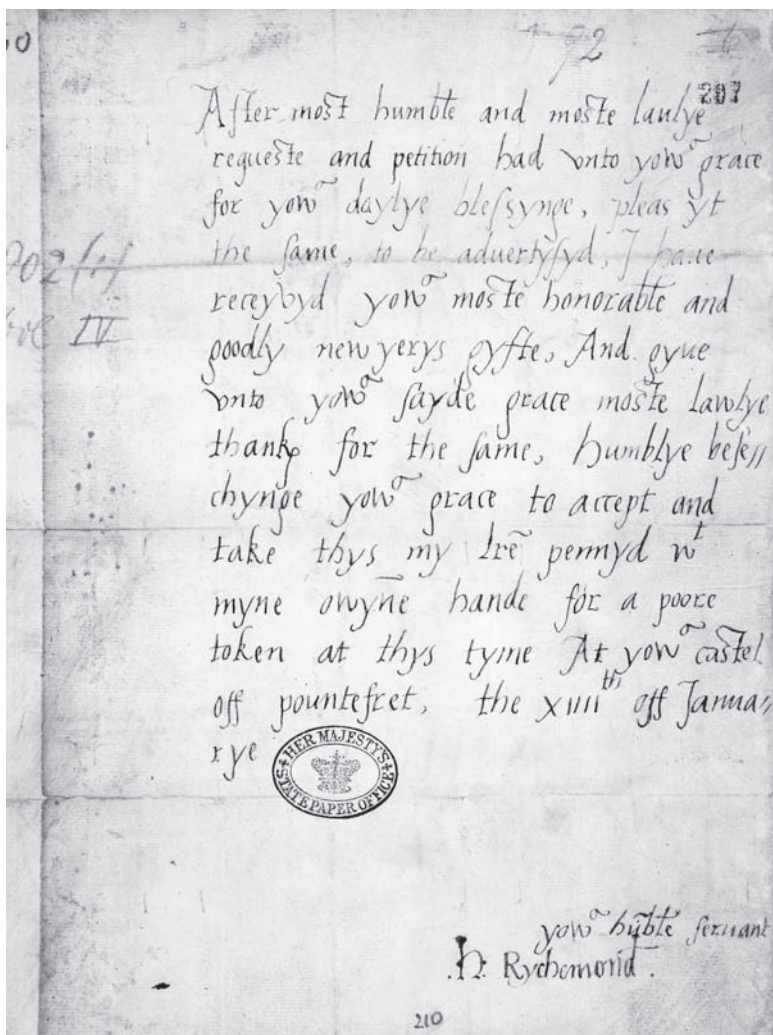 92
207
After most humble and moste lawlye
requeste and petition had vnto yowr grace
for yowr daylye blessynge, pleas yt
the same, to be aduertysyd, I haue
receyvyd yowr moste honorable and
goodly new yerys gyfte, And gyue
vnto yowr sayde grace moste Lawlye
thankꝭ for the same, humblye bese//
chynge yowr grace to accept and
take thys my lrē pennyd wt
myne owyne hande for a poore
token at thys tyme At yowr castel
off pountefret, the xiiiith off Janua//
rye
HER MAJESTY'S
STATE PAPER OFFICE
yowr hūble seruant
.H. Rychemond.
210